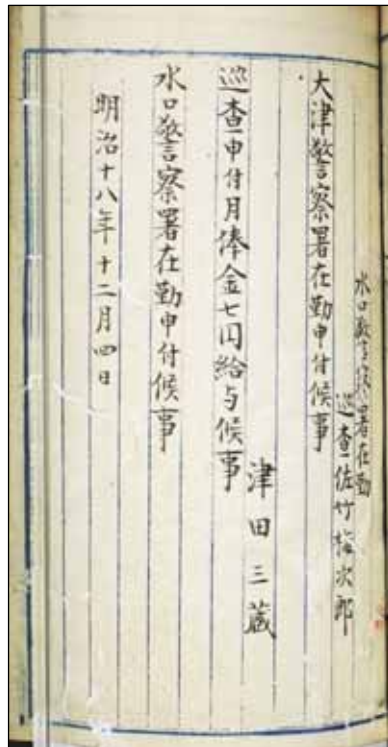 水口警察署在勤
巡査佐竹梅次郎
大津警察署在勤申付候事
津田三蔵
巡査申付月俸金七円給与候事
水口警察署在勤申付候事
明治十八年十二月四日